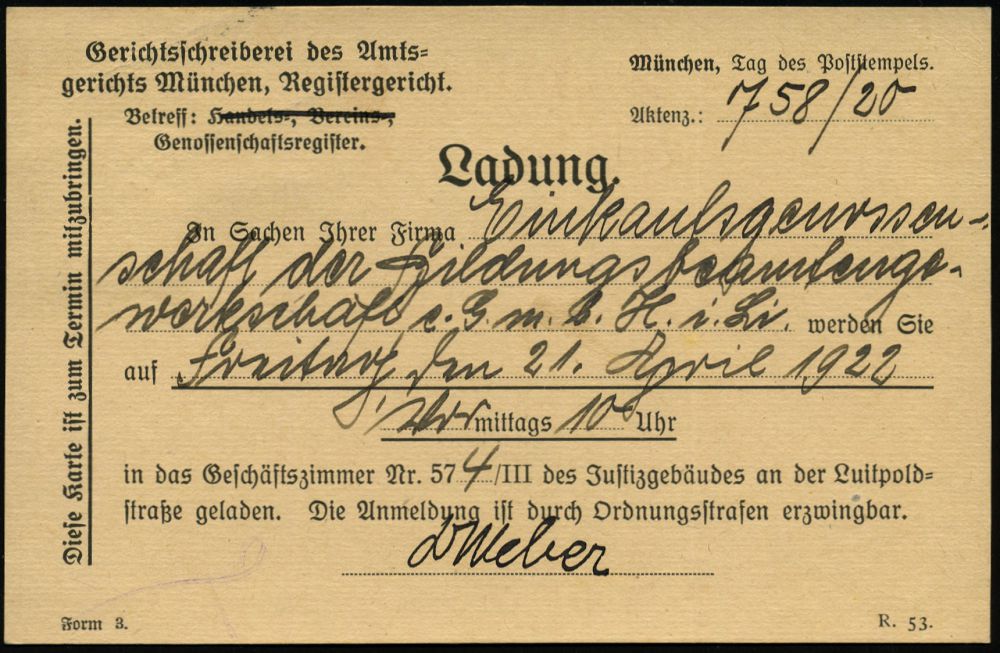 Gerichtsschreiberei des Amts=
gerichts München, Registergericht.
Betreff: Handels-, Vereins-,
Genossenschaftsregister.
München, Tag des Poststempels.
Aktenz.: 758/20
Ladung.
In Sachen Ihrer Firma Einkaufsgenossen-
schaft der Bildungsbeamtenge-
werkschaft e. G. m. b. H. i. Li. werden Sie
auf Freitag, den 21. April 1922
Vormittags 10 Uhr
in das Geschäftszimmer Nr. 574/III des Justizgebäudes an der Luitpold=
straße geladen. Die Anmeldung ist durch Ordnungsstrafen erzwingbar.
Weber
Form 3.
R. 53.
Diese Karte ist zum Termin mitzubringen.